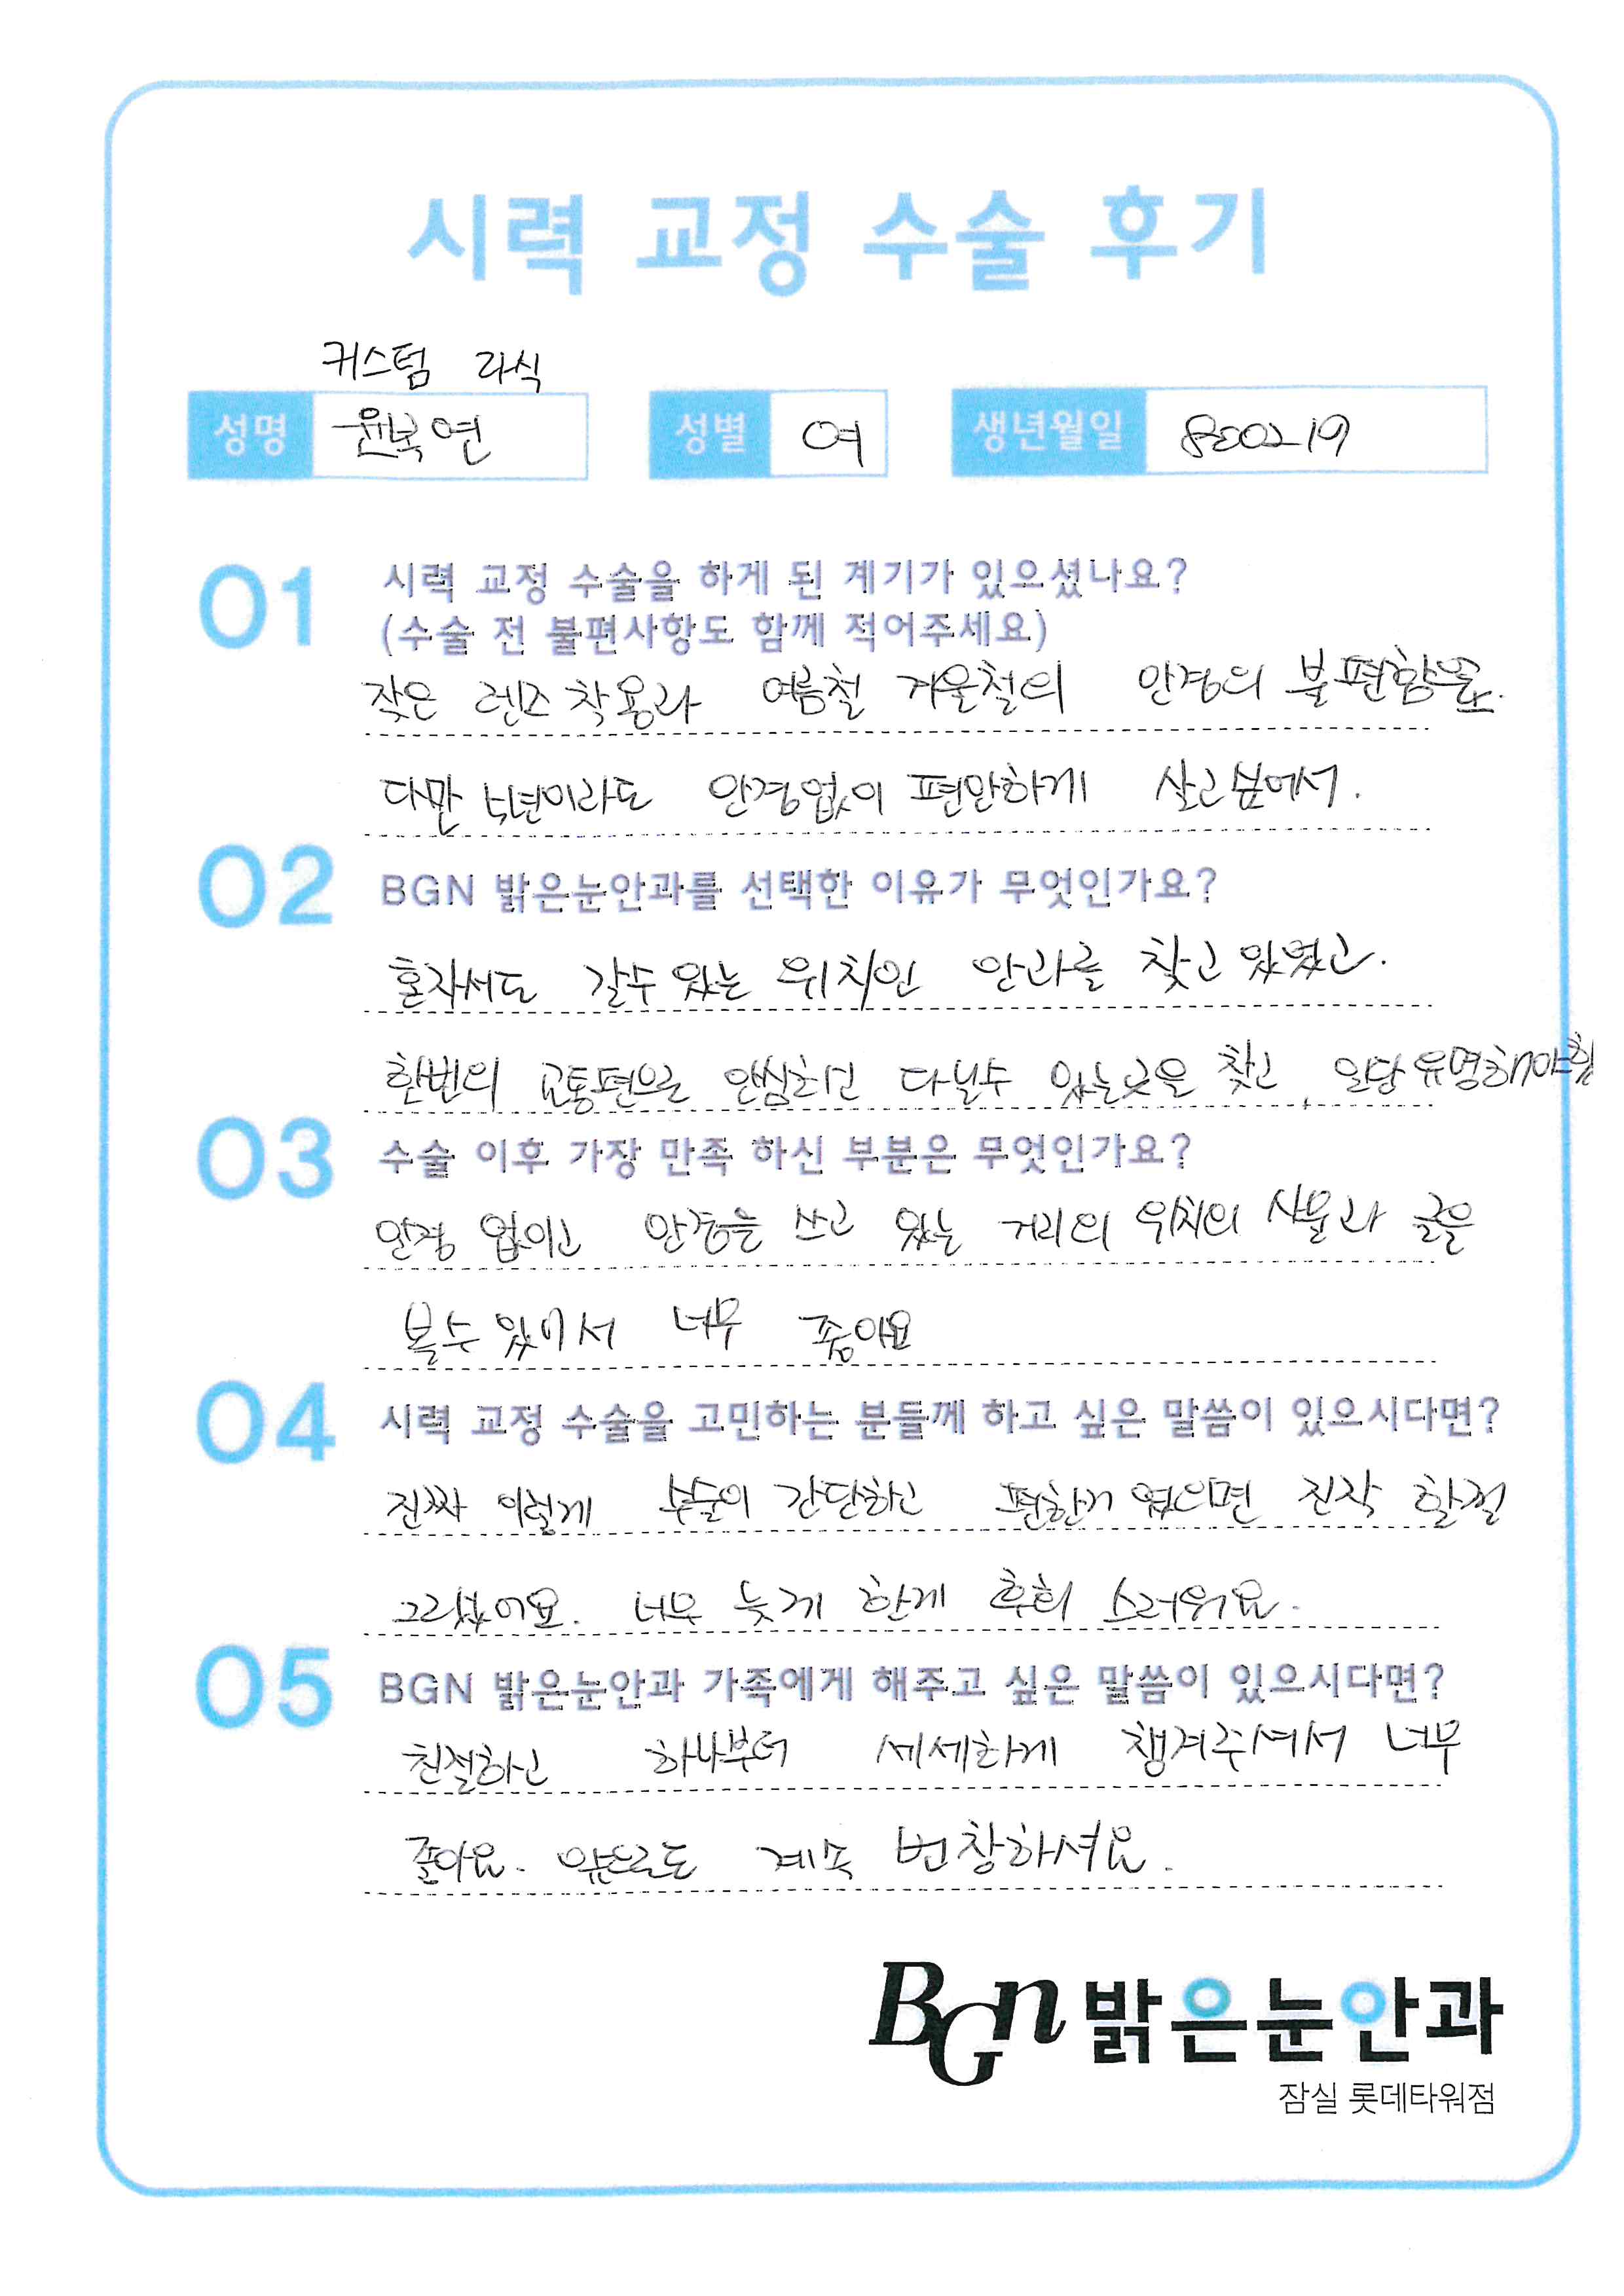 시력 교정 수술 후기
커스텀 라식
성명 윤복연 성별 여 생년월일 800219
01 시력 교정 수술을 하게 된 계기가 있으셨나요?
(수술 전 불편사항도 함께 적어주세요)
잦은 렌즈 착용과 여름철 겨울철의 안경의 불편함으로.
다만 몇년이라도 안경없이 편안하게 살고싶에서.
02 BGN 밝은눈안과를 선택한 이유가 무엇인가요?
혼자서도 갈수 있는 위치인 안과를 찾고 있었고.
한번의 교통편으로 안심하고 다닐수 있는곳을 찾고, 일단 유명해야함
03 수술 이후 가장 만족 하신 부분은 무엇인가요?
안경 없이고 안경을 쓰고 있는 거리의 위치의 사물과 글을
볼수 있어서 너무 좋아요
04 시력 교정 수술을 고민하는 분들께 하고 싶은 말씀이 있으시다면?
진짜 이렇게 수술이 간단하고 편한거 였으면 진작 할껄
그랬어요. 너무 늦게 한게 후회 스러워요.
05 BGN 밝은눈안과 가족에게 해주고 싶은 말씀이 있으시다면?
친절하고 하나부터 세세하게 챙겨주셔서 너무
좋아요. 앞으로도 계속 번창하셔요.
BGN 밝은눈안과
잠실 롯데타워점